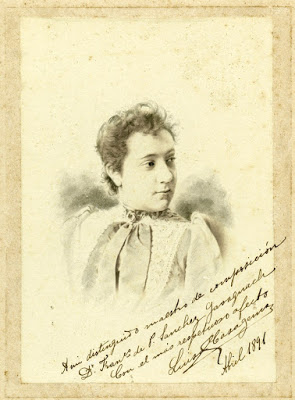 A mi distinguido maestro de composición
Dn Franco de P. Sanchez Gavagnach
Con el más respetuoso afecto
Luisa Casagemas
Abril 1891